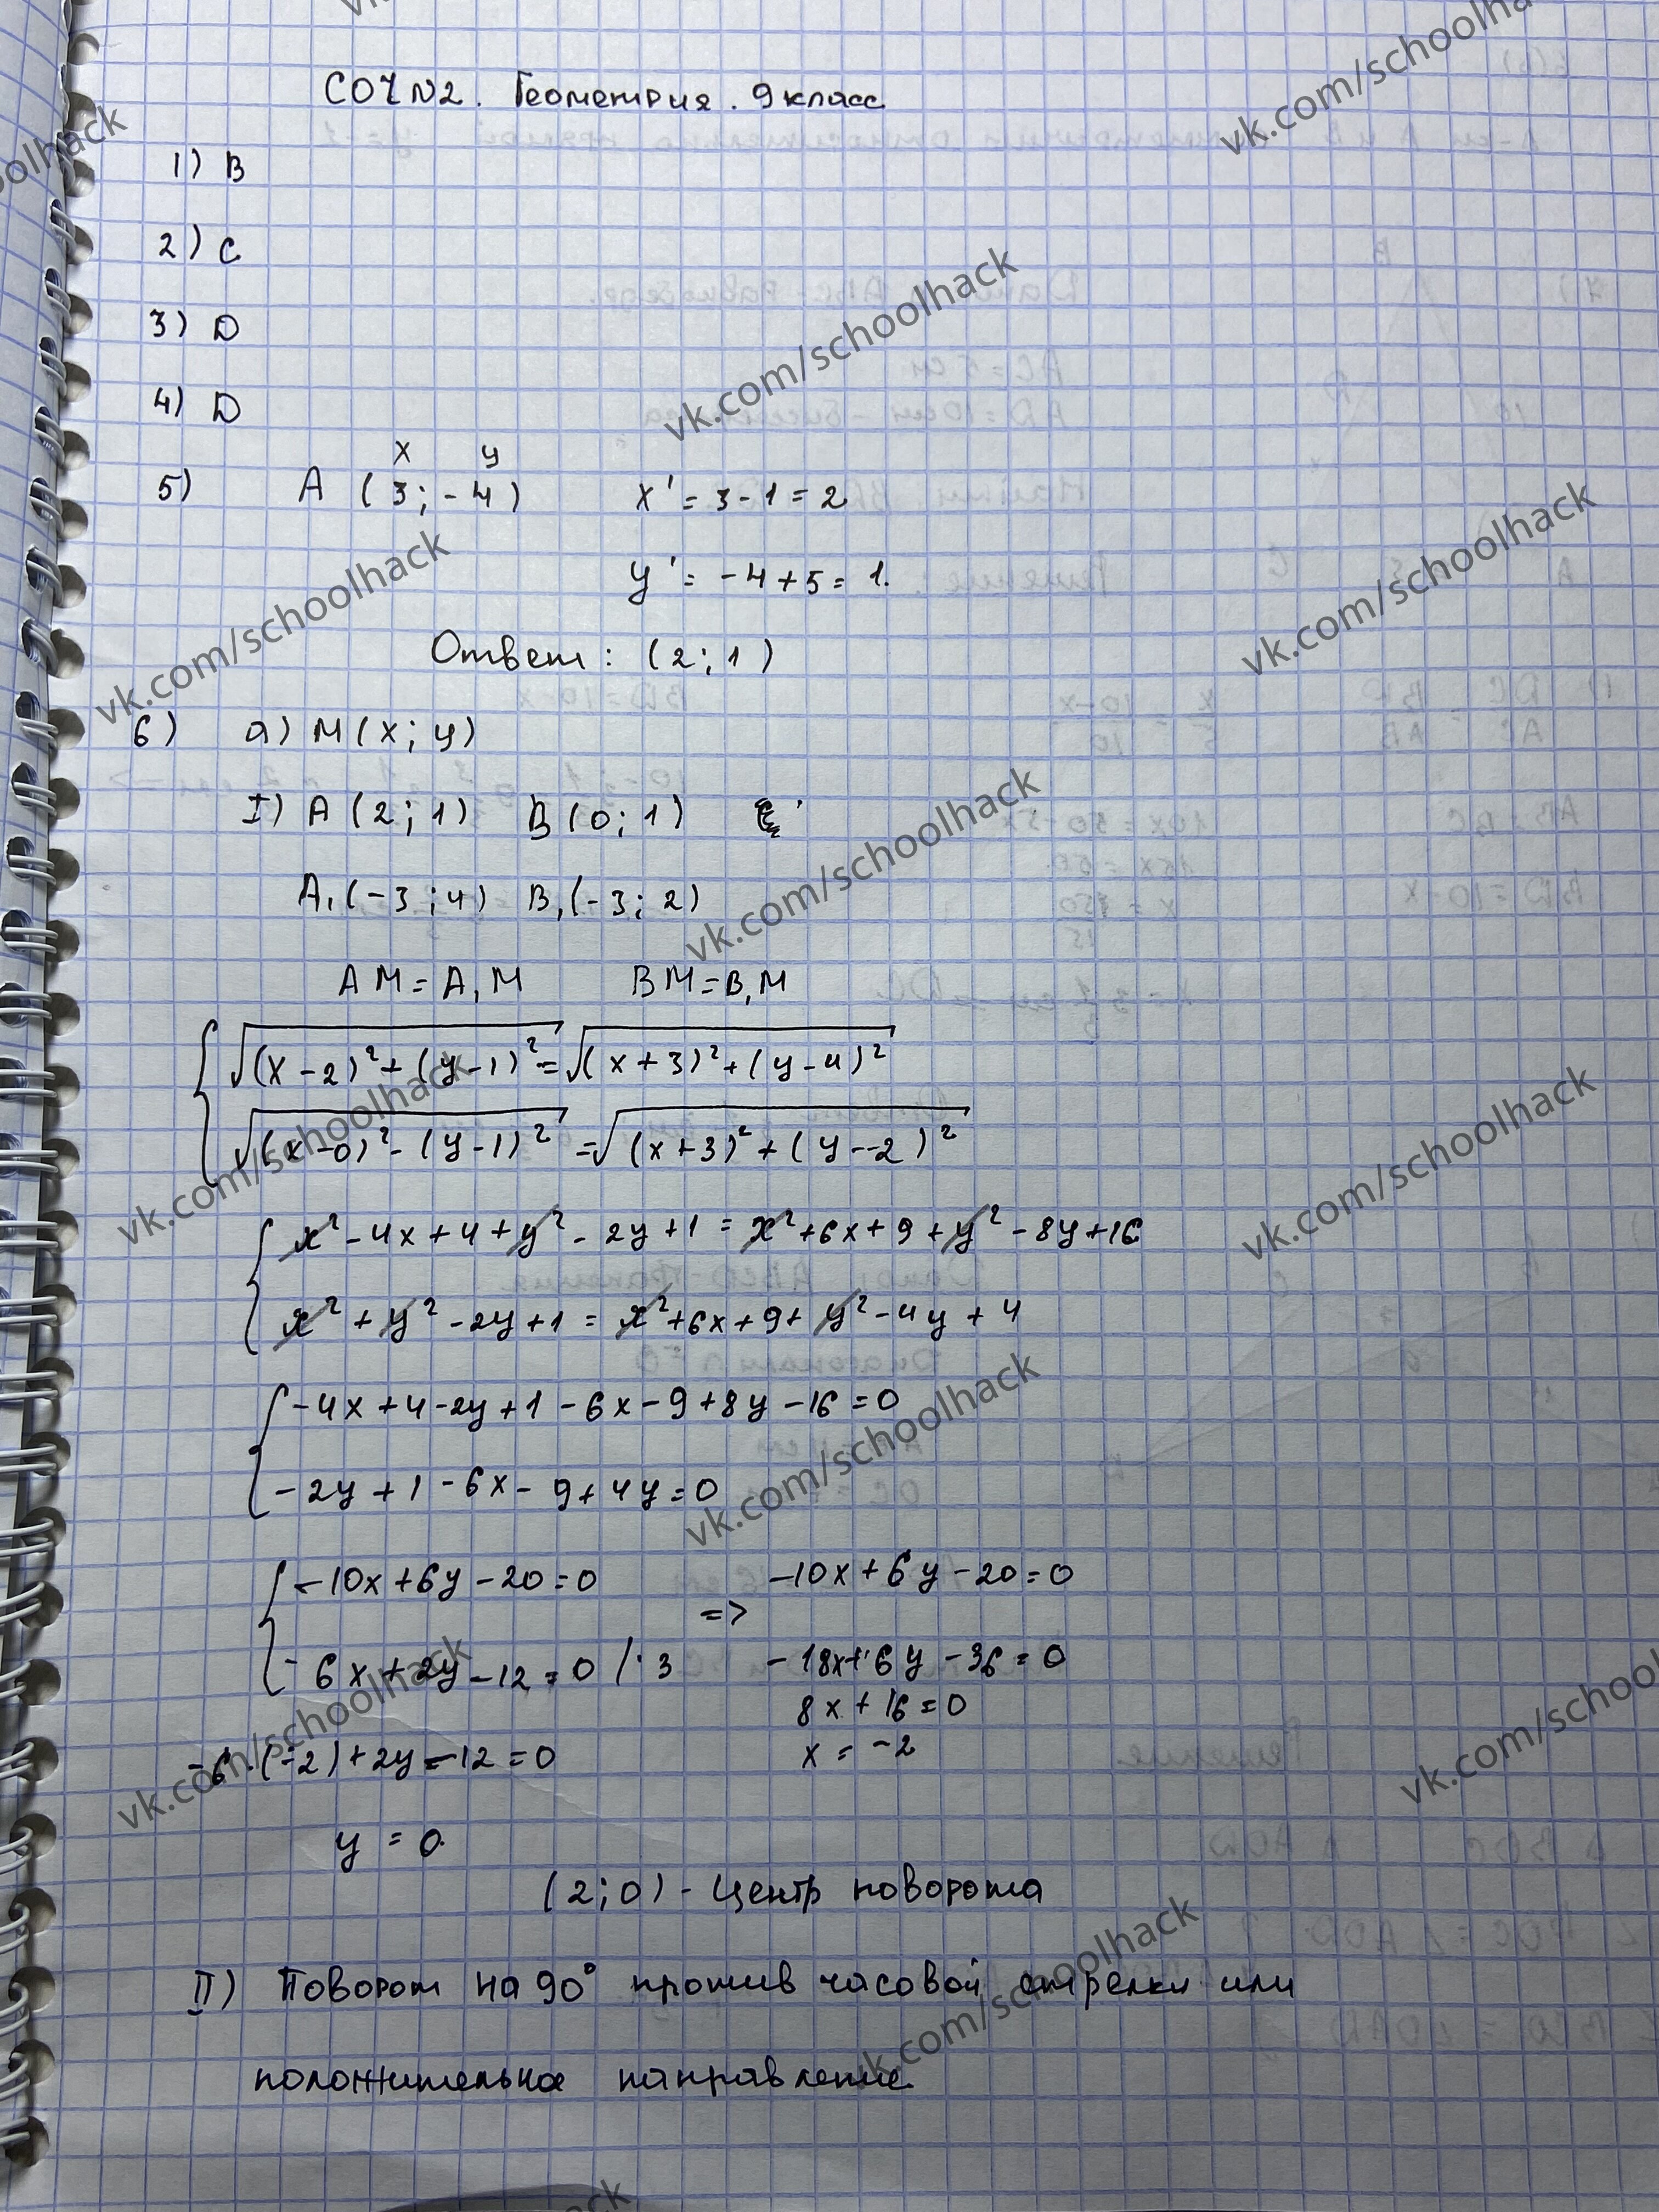 СОЧ №2. Геометрия. 9 класс
1) B
2) C
3) D
4) D
x y
5) A (3; -4) x' = 3 - 1 = 2
y' = -4 + 5 = 1.
Ответ: (2; 1)
6) а) M(x; y)
I) A(2; 1) B(0; 1)
A₁(-3; 4) B₁(-3; 2)
AM = A₁M BM = B₁M
√((x-2)² + (y-1)²) = √((x+3)² + (y-4)²)
√((x-0)² - (y-1)²) = √((x+3)² + (y--2)²)
x² - 4x + 4 + y² - 2y + 1 = x² + 6x + 9 + y² - 8y + 16
x² + y² - 2y + 1 = x² + 6x + 9 + y² - 4y + 4
-4x + 4 - 2y + 1 - 6x - 9 + 8y - 16 = 0
-2y + 1 - 6x - 9 + 4y = 0
-10x + 6y - 20 = 0 => -10x + 6y - 20 = 0
-6x + 2y - 12 = 0 / · 3 -18x + 6y - 36 = 0
8x + 16 = 0
-6 · (-2) + 2y - 12 = 0 x = -2
y = 0.
(2; 0) - Центр поворота
II) Поворот на 90° против часовой стрелки или
положительное направление.
vk.com/schoolhack
vk.com/schoolhack
vk.com/schoolhack
vk.com/schoolhack
vk.com/schoolhack
vk.com/schoolhack
vk.com/schoolhack
vk.com/schoolhack
vk.com/schoolhack
vk.com/schoolhack
vk.com/schoolhack